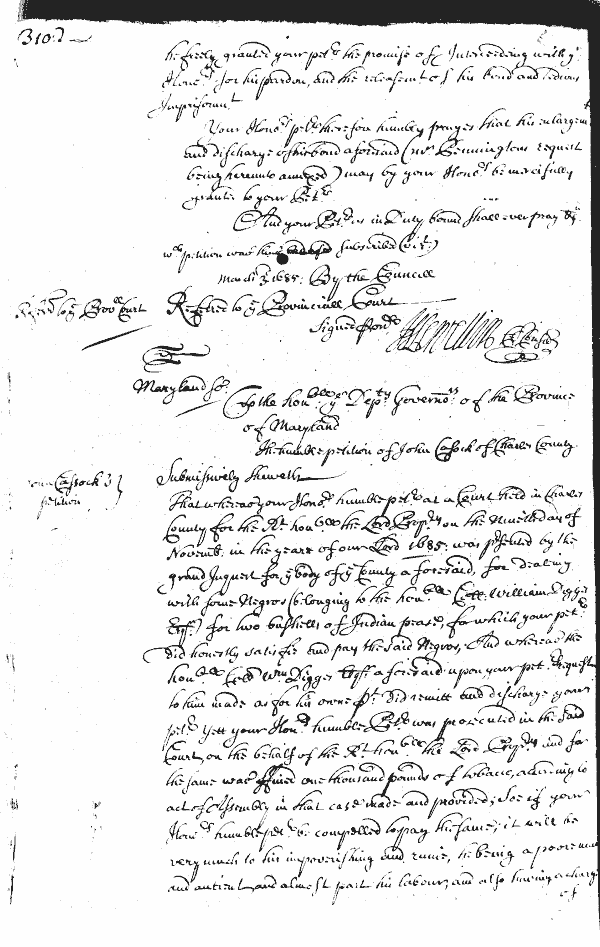 310:d
he freely granted your pet.r the promise of Interceeding with y.r
Hono.rs for his pardon, and the releasem.t of his bond and
Imprisonm.t
Your Hono.rs pet.r therefore humbly prayes that his enlargem.t
and discharge of his bond aforesaid (m.r Benningtons request
being hereunto annexed) may by your Hono.rs be mercifully
granted to your Pet.r
And your Pet.r as in Duty bound shall ever pray &c
w.ch petition was subscribed (viz.t)
March 3 1685: By the Councill
Referred to y.e Provinciall Court
Referred to y.e Prov.ll Court
Signed
Maryland ss.
To the hon.ble y.e Dep.ty Governo.rs of the Province
of Maryland
The humble petition of John Casock of Charles County
Cassock's
petition
Submissively Sheweth
That whereas your Hono.rs humble pet.r at a Court held in Charles
County for the R.t hon.ble the Lord Prop.ry on the Ninth day of
Novemb.r in the yeare of our Lord 1685: was p.rsented by the
grand Inquest for y.e body of y.e County aforesaid, for dealing
with some Negros (belonging to the hon.ble Coll. William Digges
Esq.r) for two bushells of Indian pease, for which your pet.r
did honestly satisfie and pay the said Negros, And whereas the
hon.ble Coll. W.m Digges Esq.r aforesaid upon your pet.rs Request
to him made as for his owne p.t did remitt and discharge your
pet.r yett your Hono.rs humble Pet.r was prosecuted in the said
Court, on the behalf of the R.t hon.ble the Lord Prop.ry and for
the same was ffined one thousand pounds of tobacc, according to
act of Assembly in that case made and provided; Soe if your
Hono.rs humble pet.r be compelled to pay the same, it will be
very much to his impoverishing and ruine, he being a poore man
and antient and almost past his labour, and also having a charge
of